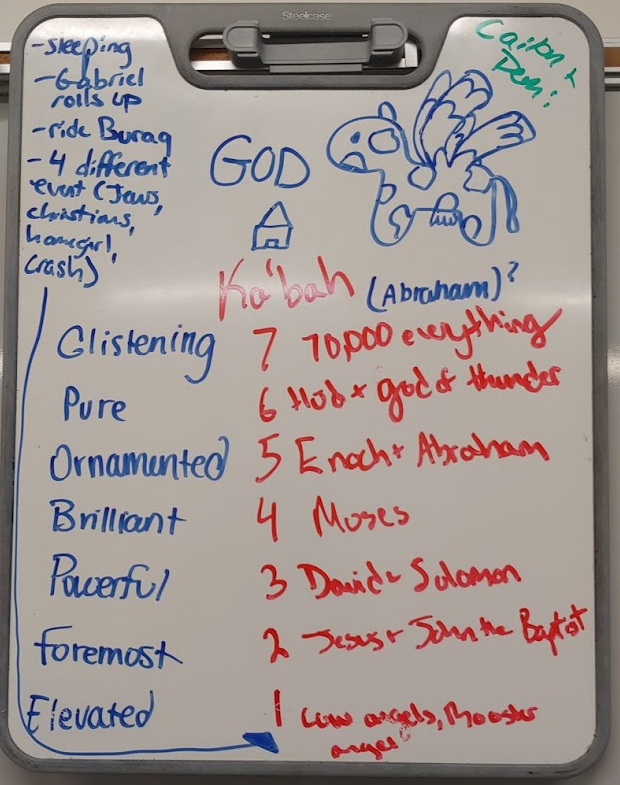 Steelcase
-sleeping
-Gabriel
rolls up
-ride Buraq
-4 different
event (Jews,
christians,
homegirl,
crash)
GOD
Ka'bah (Abraham)?
Glistening 7 70,000 everything
Pure 6 + god of thunder
Ornamented 5 Enoch + Abraham
Brilliant 4 Moses
Powerful 3 David + Solomon
Foremost 2 Jesus + John the Baptist
Elevated 1 cow angels, Rooster
angel